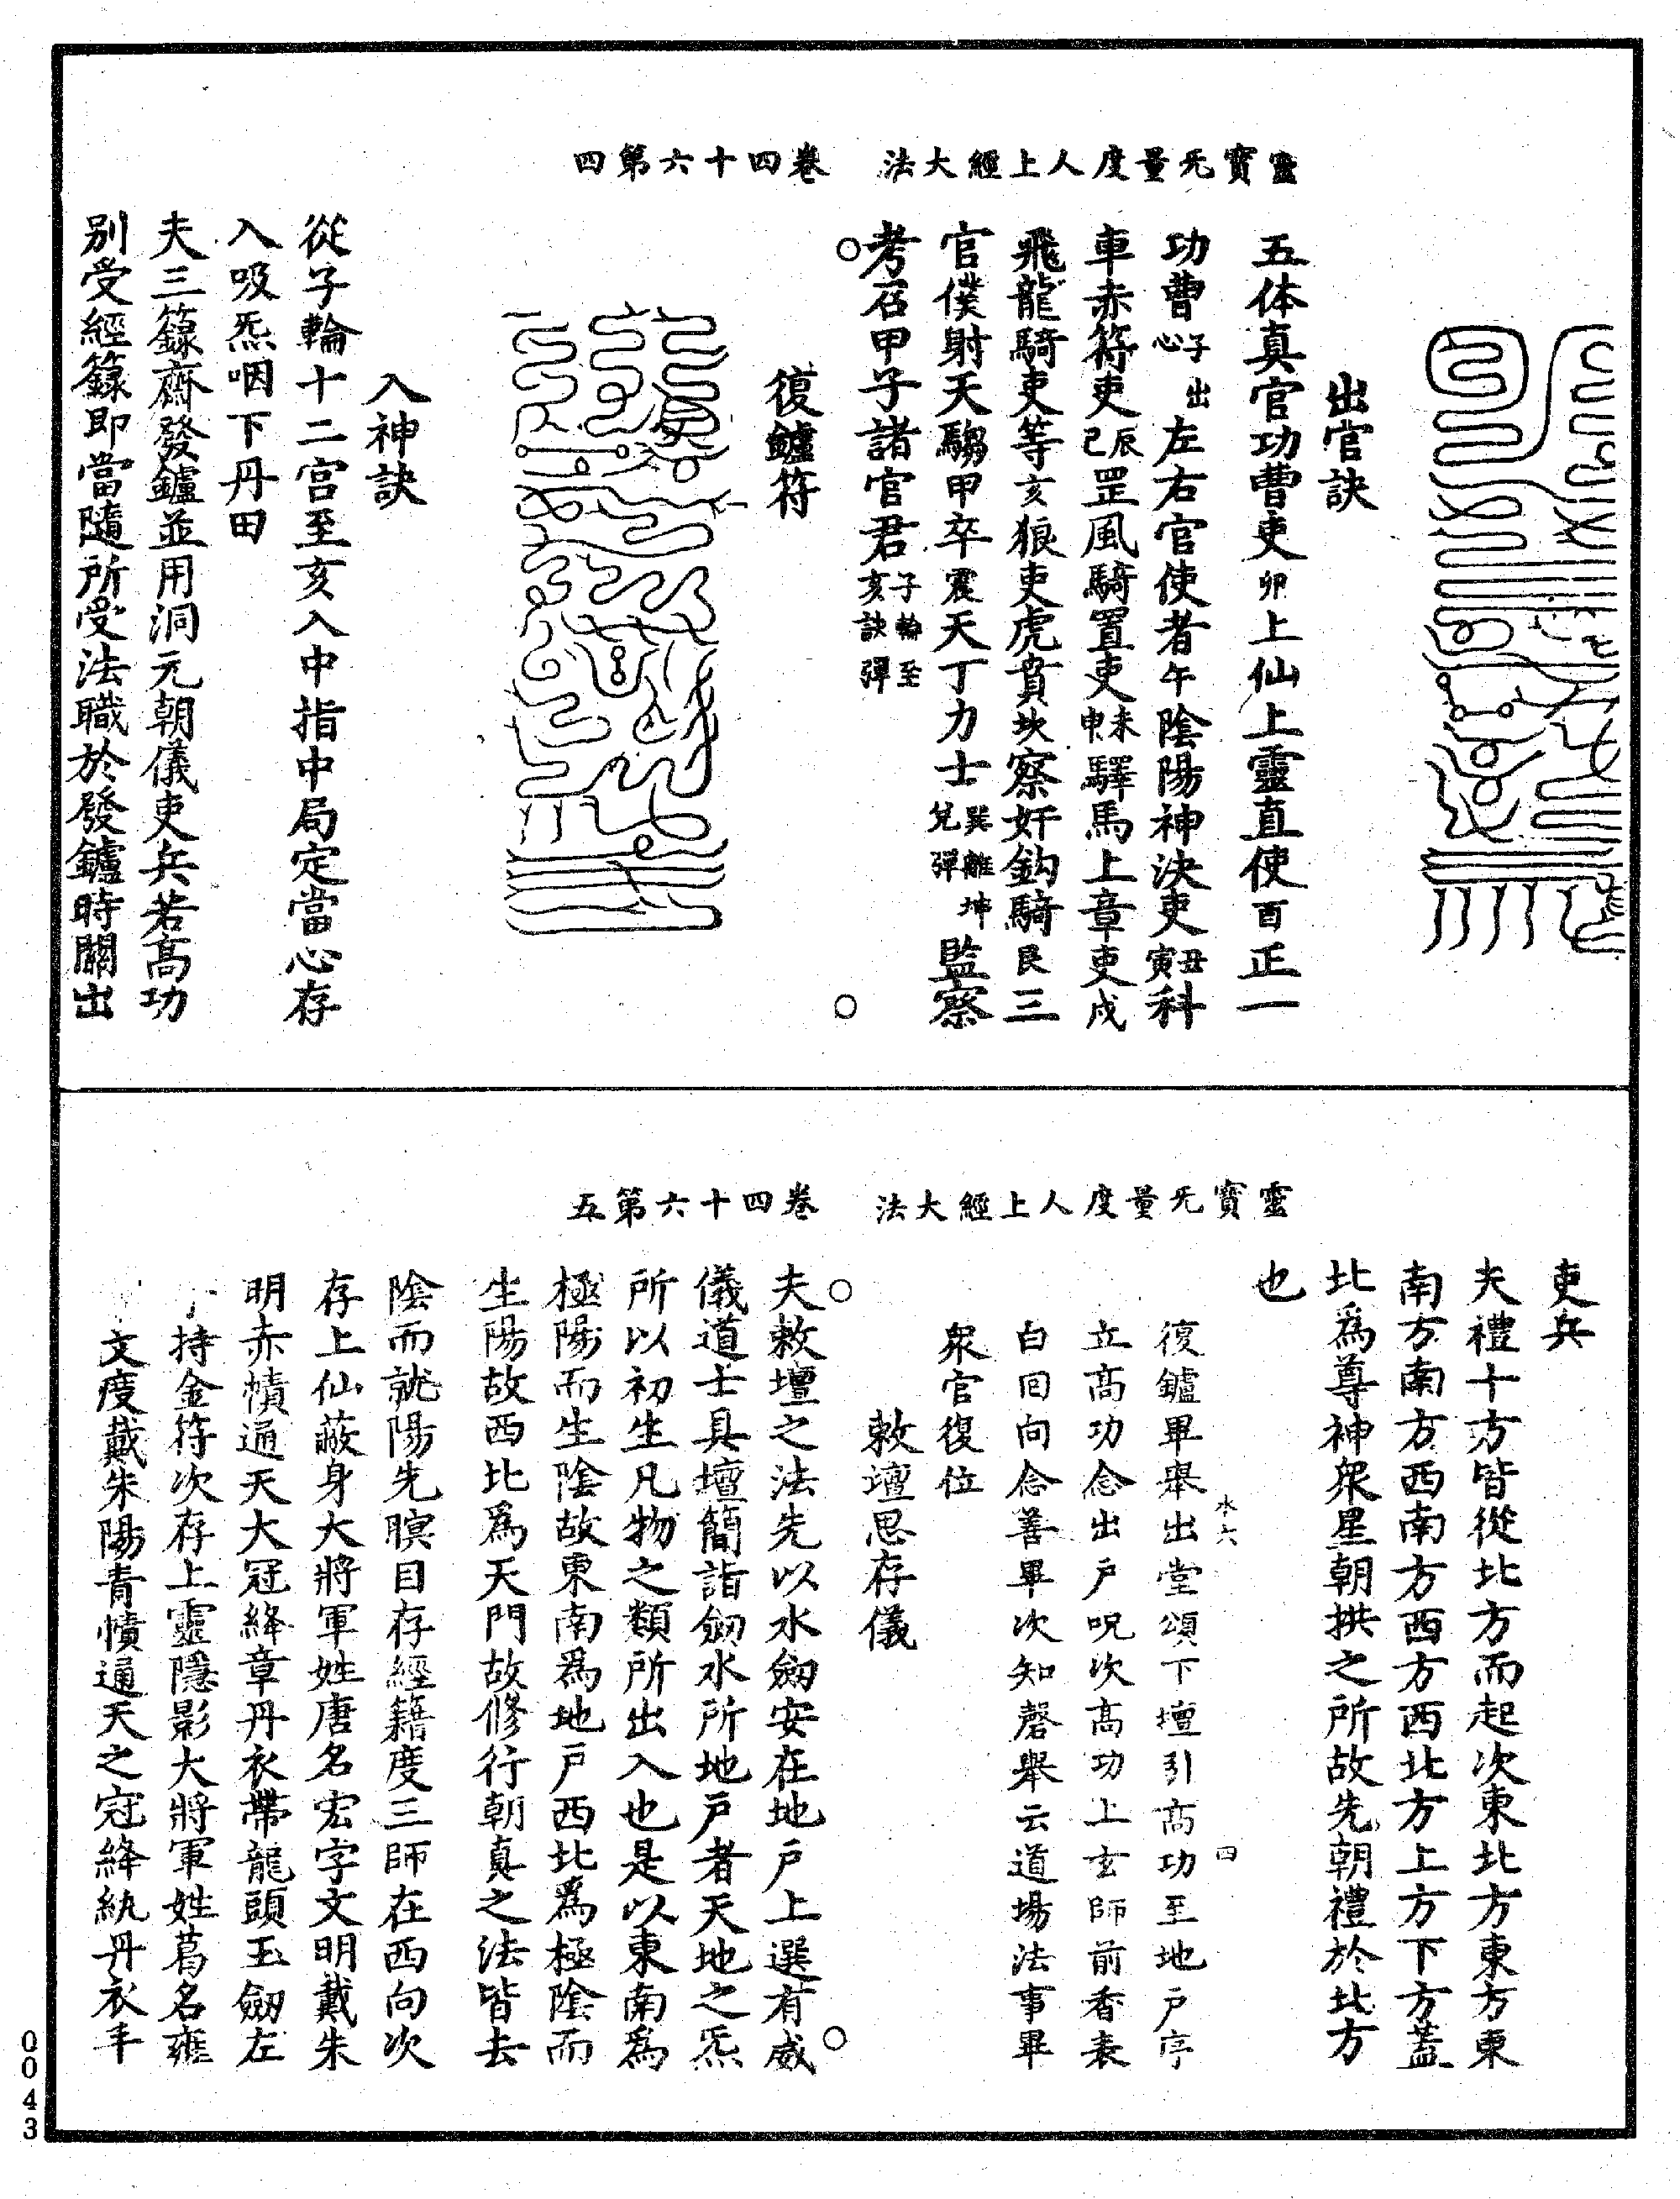 靈寶无量度人上經大法　卷四十六第四
出官訣
五体真官功曹吏卯上仙上靈直使酉正一
功曹子出心左右官使者午陰陽神決吏丑寅科
車赤符吏辰巳罡風騎置吏未申驛馬上章吏戌
飛龍騎吏等亥狼吏虎賁坎察奸鈎騎艮三
官僕射天騶甲卒震天丁力士巽離坤兌彈監察
考召甲子諸官君子輪至亥訣彈
復鑪符
入神訣
從子輪十二宮至亥入中指中局定當心存
入吸炁咽下丹田
夫三籙齋發鑪並用洞元朝儀吏兵若高功
別受經籙即當隨所受法職於發鑪時關出
靈寶无量度人上經大法　卷四十六第五
吏兵
夫禮十方皆從北方而起次東北方東方東
南方南方西南方西方西北方上方下方蓋
北爲尊神衆星朝拱之所故先朝禮於北方
也
水六　四
復鑪畢舉出堂頌下壇引高功至地戶序
立高功念出戶呪次高功上玄師前香表
白回向念善畢次知磬舉云道場法事畢
衆官復位
敕壇思存儀
夫敕壇之法先以水劒安在地戶上選有威
儀道士具壇簡詣劒水所地戶者天地之炁
所以初生凡物之類所出入也是以東南爲
極陽而生陰故東南爲地戶西北爲極陰而
生陽故西北爲天門故修行朝真之法皆去
陰而就陽先瞑目存經籍度三師在西向次
存上仙蔽身大將軍姓唐名宏字文明戴朱
明赤幘通天大冠絳章丹衣帶龍頭玉劒左
持金符次存上靈隱影大將軍姓葛名雍
文度戴朱陽青幘通天之冠絳紈丹衣手
0043